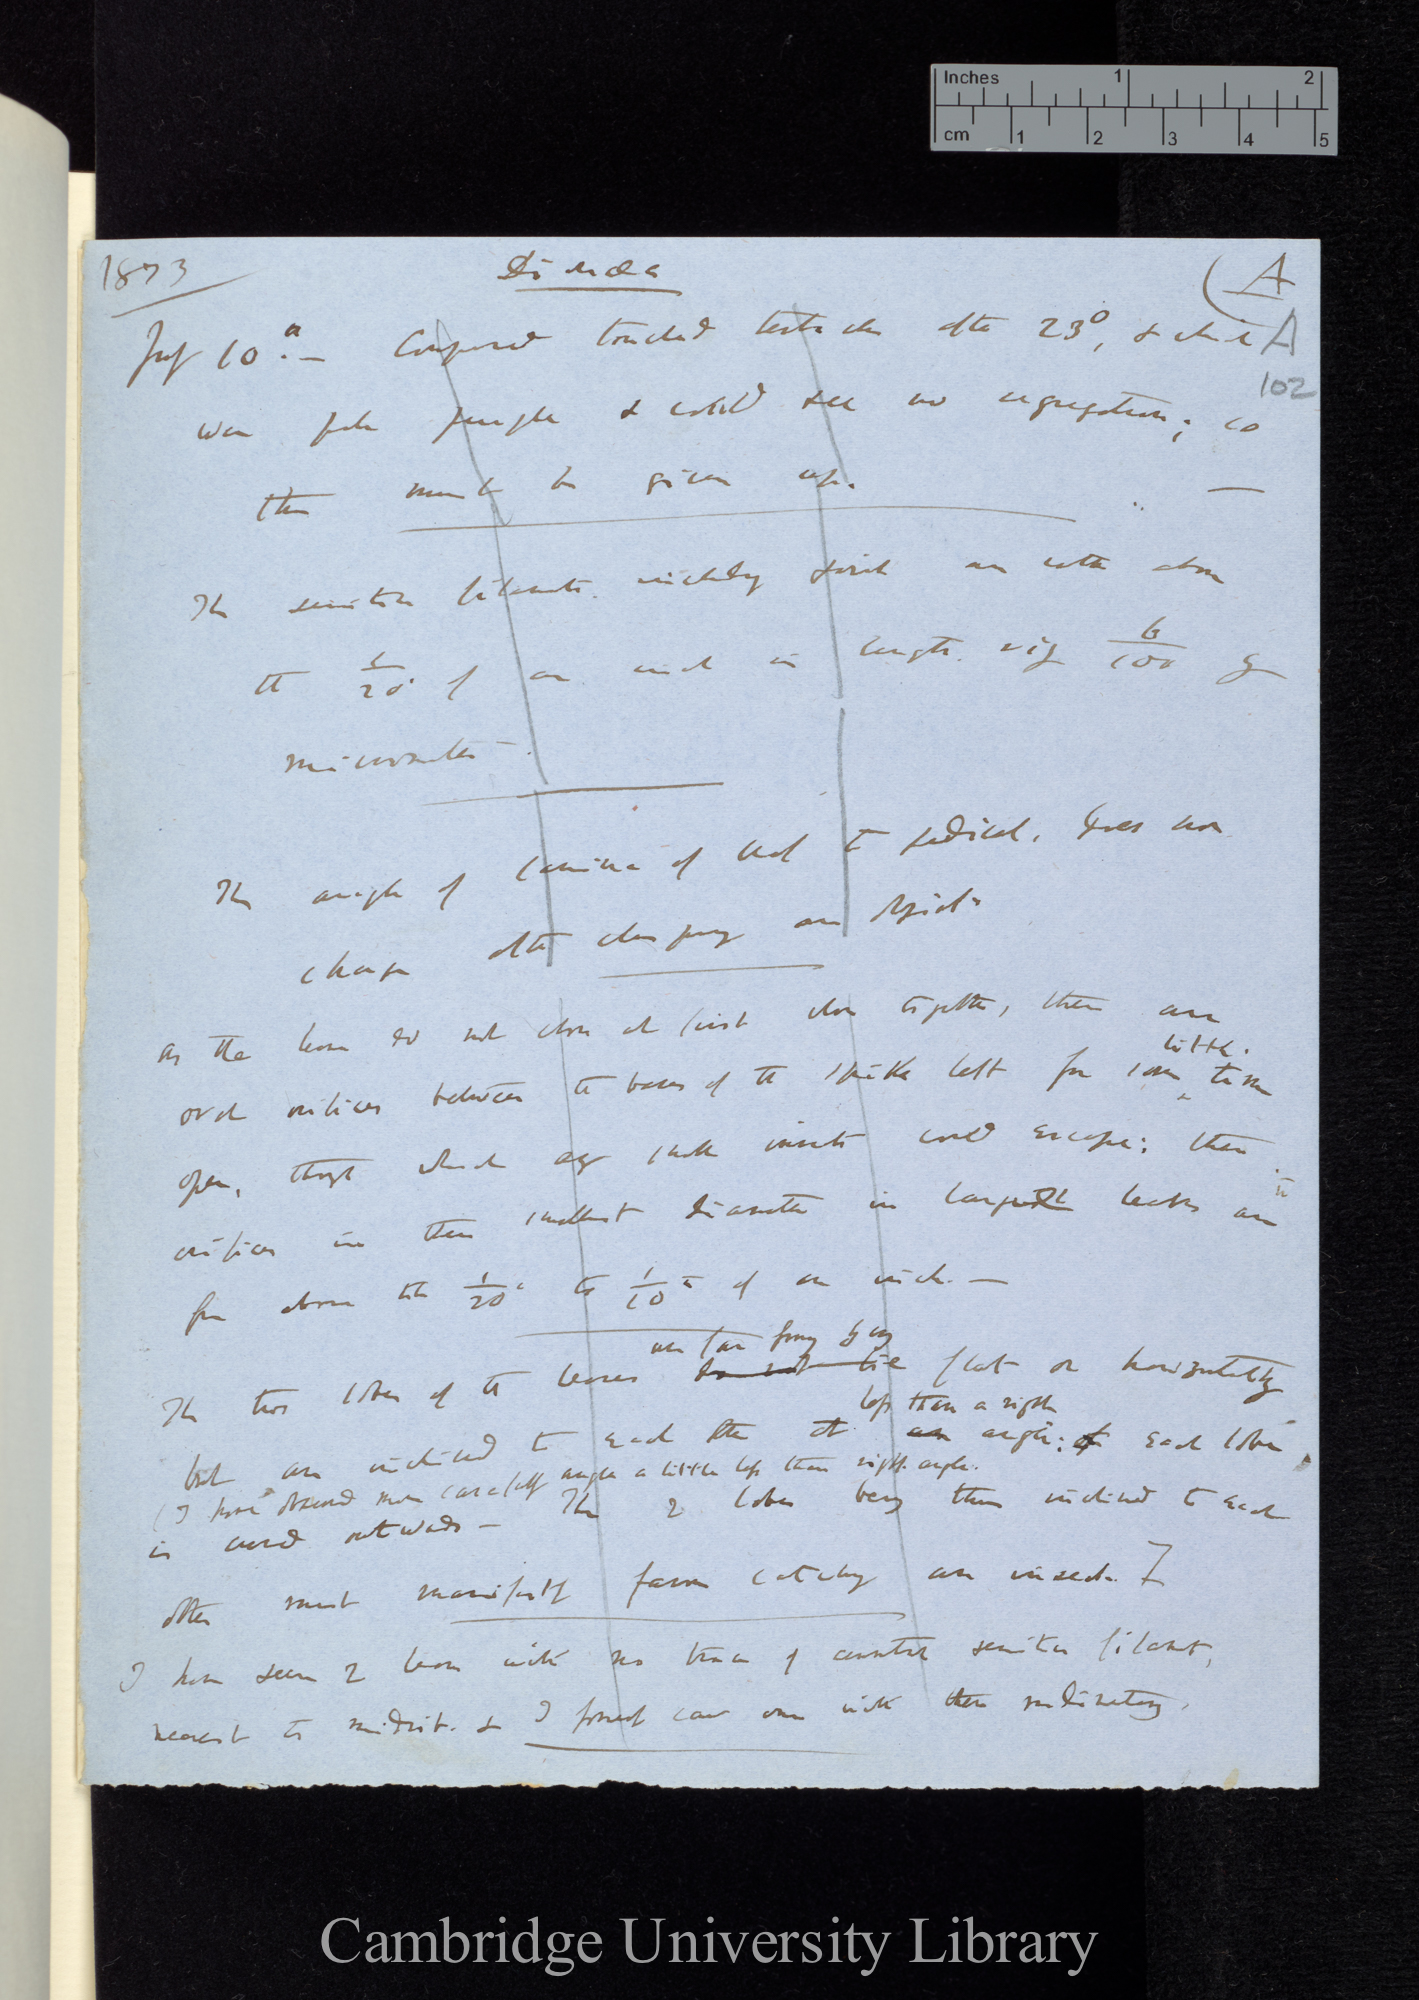 Inches 1 2
cm 1 2 3 4 5
1873
Dionaea
(A
A
102
July 10th — Compared touched tentacles after 23°, & which
were pale purple & could see no aggregation; so
this must be given up. —
The sensitive filaments. widely are rather above
the 1/20 of an inch in length. viz 6/100 by
micrometer.
The angle of lamina of leaf to pedicel, does not
change after clasping an object
As the leaves do not close at first close together, there are
oval orifices between the bases of the spikes left for some little time
open, through which any small insects could escape; these
orifices in their smallest diameter in largest leaves are
from above the 1/20 to 1/10th of an inch. —
The two lobes of the leaves do not lie are far from being flat or horizontally
but are inclined to each other at an less than a right angle; & each lobe
(I have observed more carefully angle a little less than right angle.
is curved outwards — The 2 lobes being thus inclined to each
other must manifestly favour catching an insect. ]
I have seen 2 leaves with no trace of central sensitive filament,
nearest to midrib. & I formerly saw one with them rudimentary.
Cambridge University Library